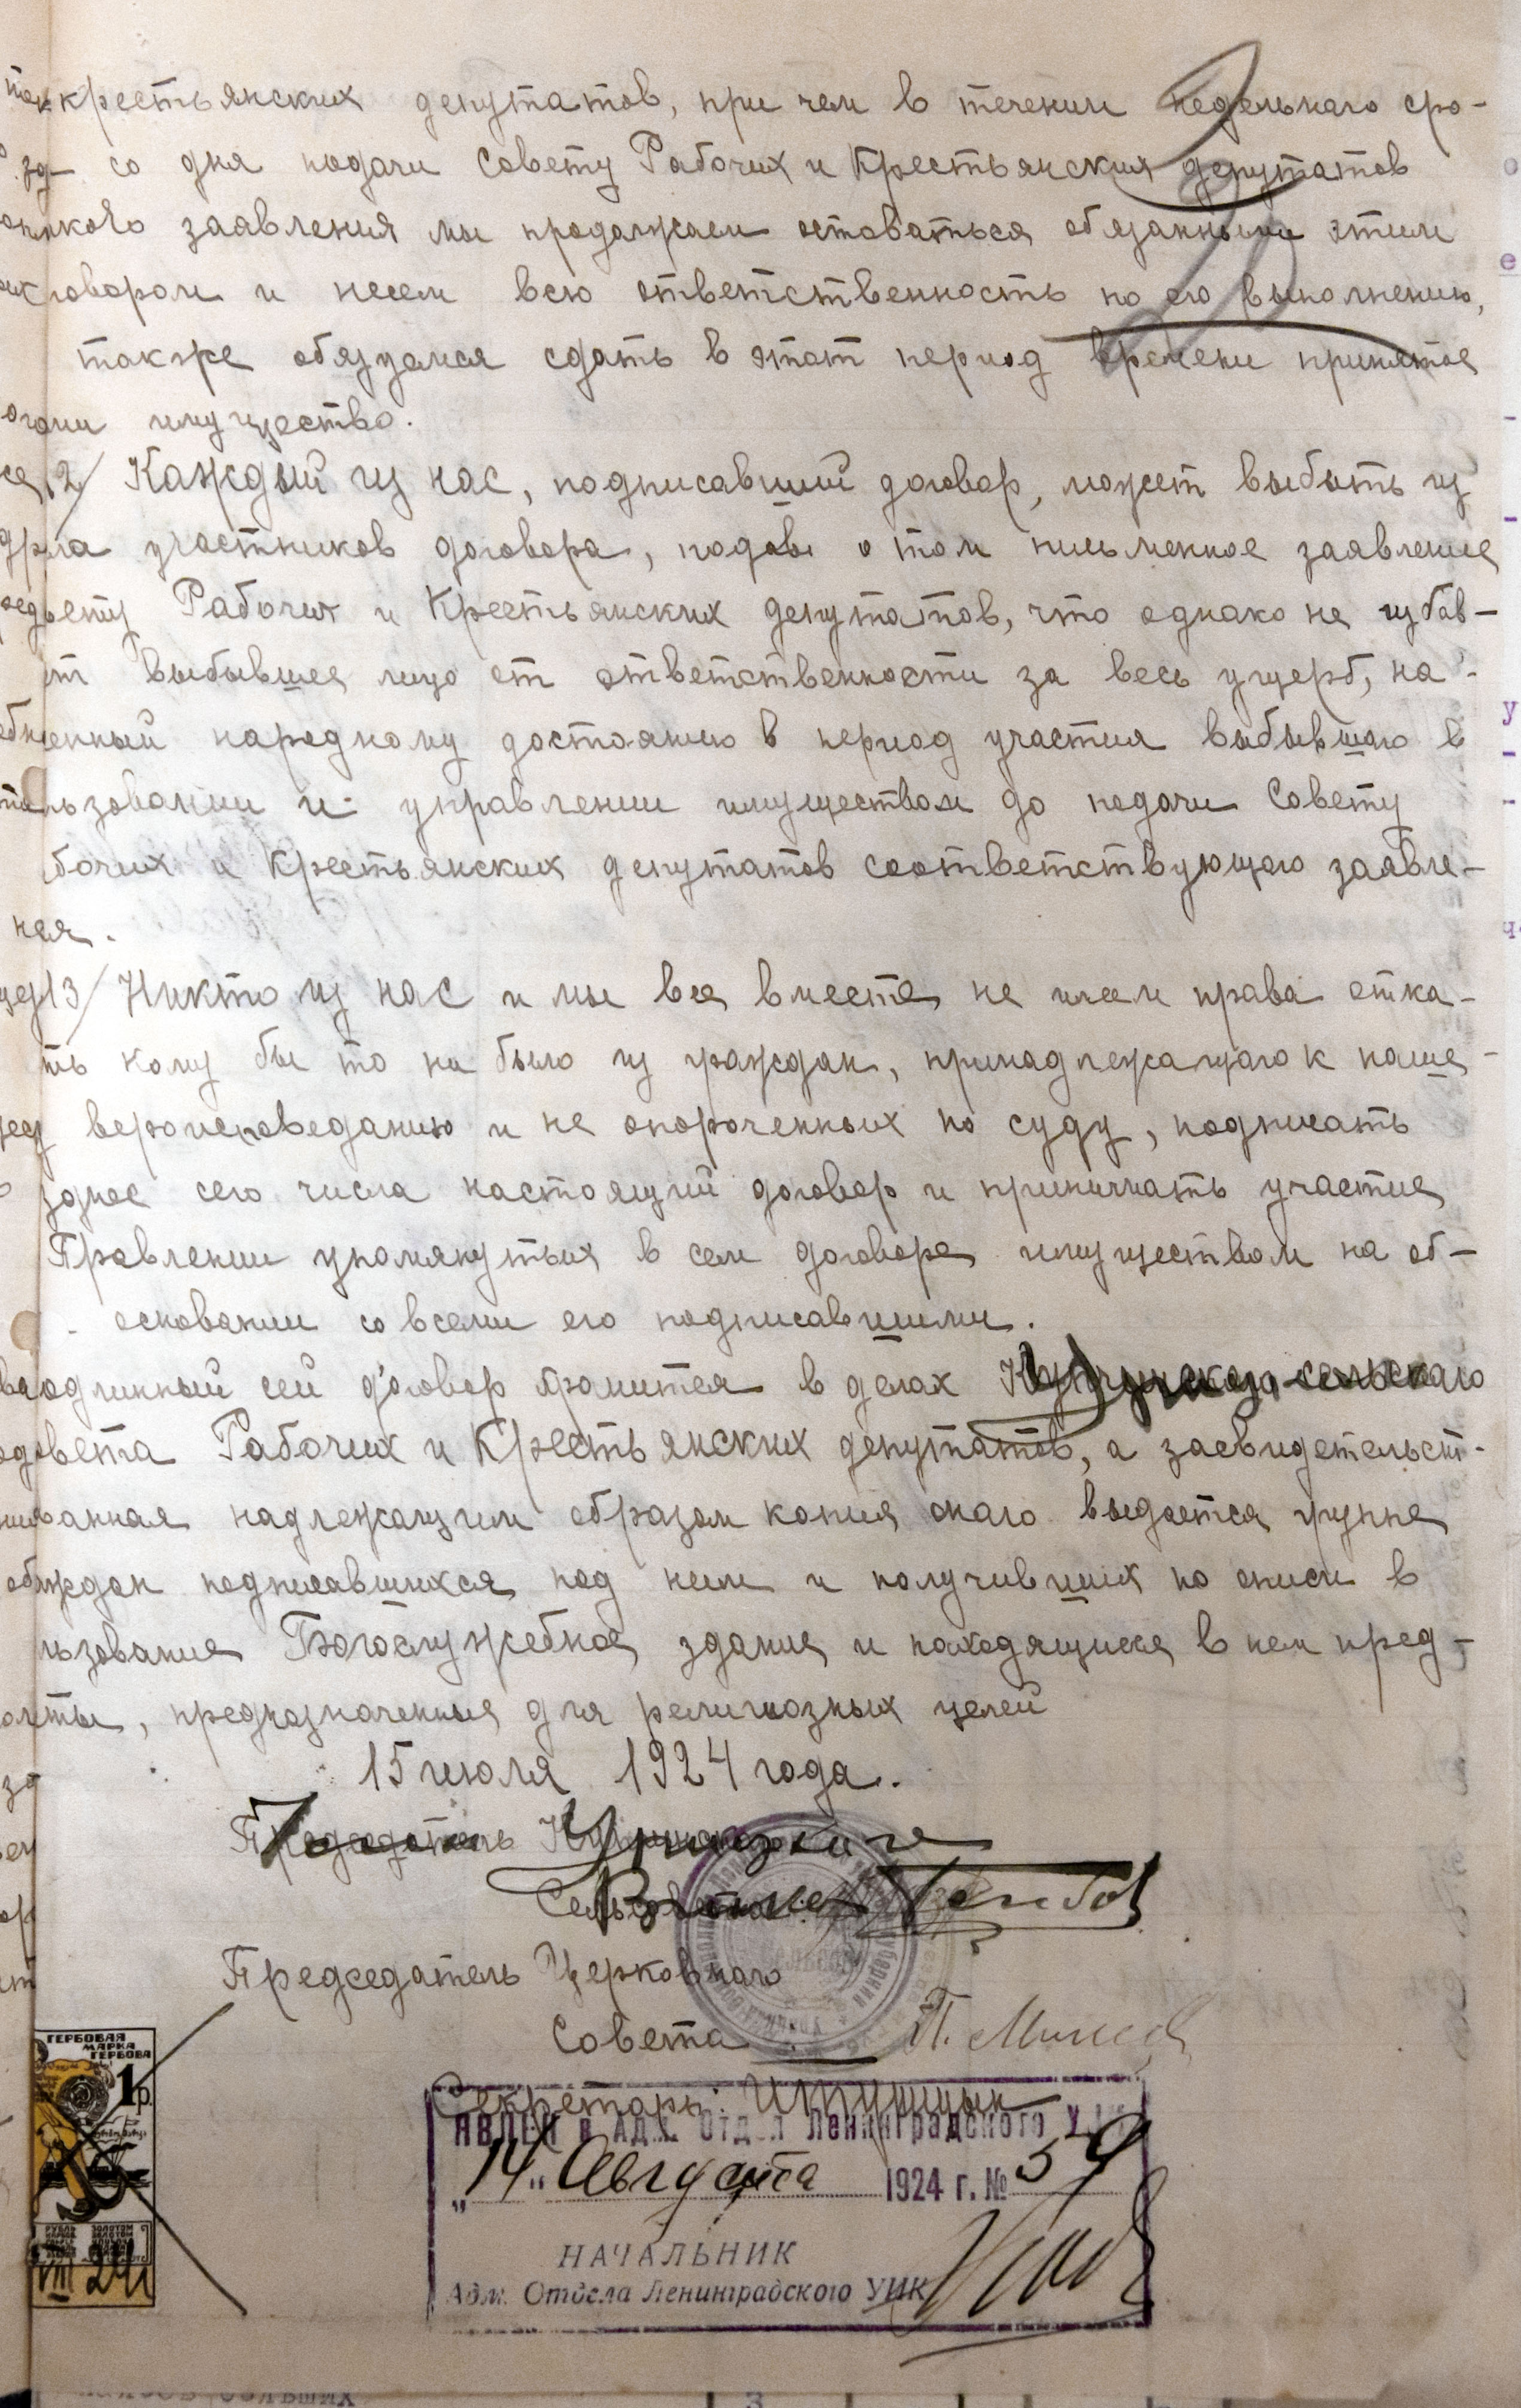 крестьянских депутатов, при чем в течении недельнаго сро-
со дня подачи Совету Рабочих и Крестьянских депутатов
такого заявления мы продолжаем оставаться обязанными этим
договором и несем всю ответственность по его выполнению,
также обязуемся сдать в этот период времени принятое
нами имущество.
12/ Каждый из нас, подписавший договор, может выбыть из
участников договора, подав о том письменное заявление
Совету Рабочих и Крестьянских депутатов, что однако не избав-
ет выбывшее лицо от ответственности за весь ущерб, на-
несенный народному достоянию в период участия выбывшаго в
пользовании и управлении имуществом до подачи Совету
бочих и Крестьянских депутатов соответствующаго заявле-
ния.
13/ Никто из нас и мы все вместе, не имеем права отка-
ть кому бы то ни было из граждан, принадлежащаго к наше-
вероисповеданию и не опороченных по суду, подписать
зднее сего числа настоящий договор и принимать участие
правлении упомянутых в сем договоре имуществом на об-
основании со всеми его подписавшими.
одлинный сей договор хранится в делах Купчинскаго сельскаго
овета Рабочих и Крестьянских депутатов, а засвидетельст-
ванная надлежащим образом копия онаго выдается группе
ждан подписавшихся под ним и получивших по описи в
льзование Богослужебное здание и находящиеся в нем пред-
меты, предназначенные для религиозных целей
15 июля 1924 года.
Председатель
Сельсовета
Председатель Церковнаго
Совета
Секретарь:
ГЕРБОВАЯ
МАРКА
ГЕРБОВА
1 р.
ЯВЛЕН в Адм. Отдел Ленинградского У.И.К
„14" Августа 1924 г. № 59
НАЧАЛЬНИК
Адм. Отдела Ленинградского УИК
VIII 24